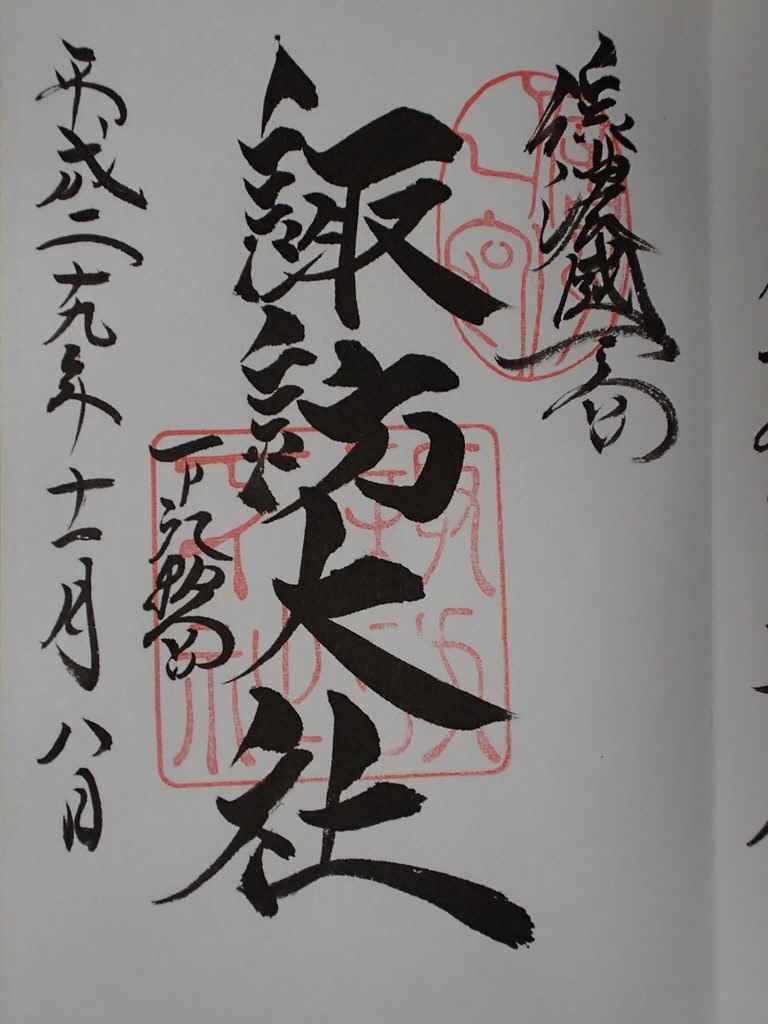 信濃國一之宮
諏訪大社
下社秋宮
平成二十九年十一月八日